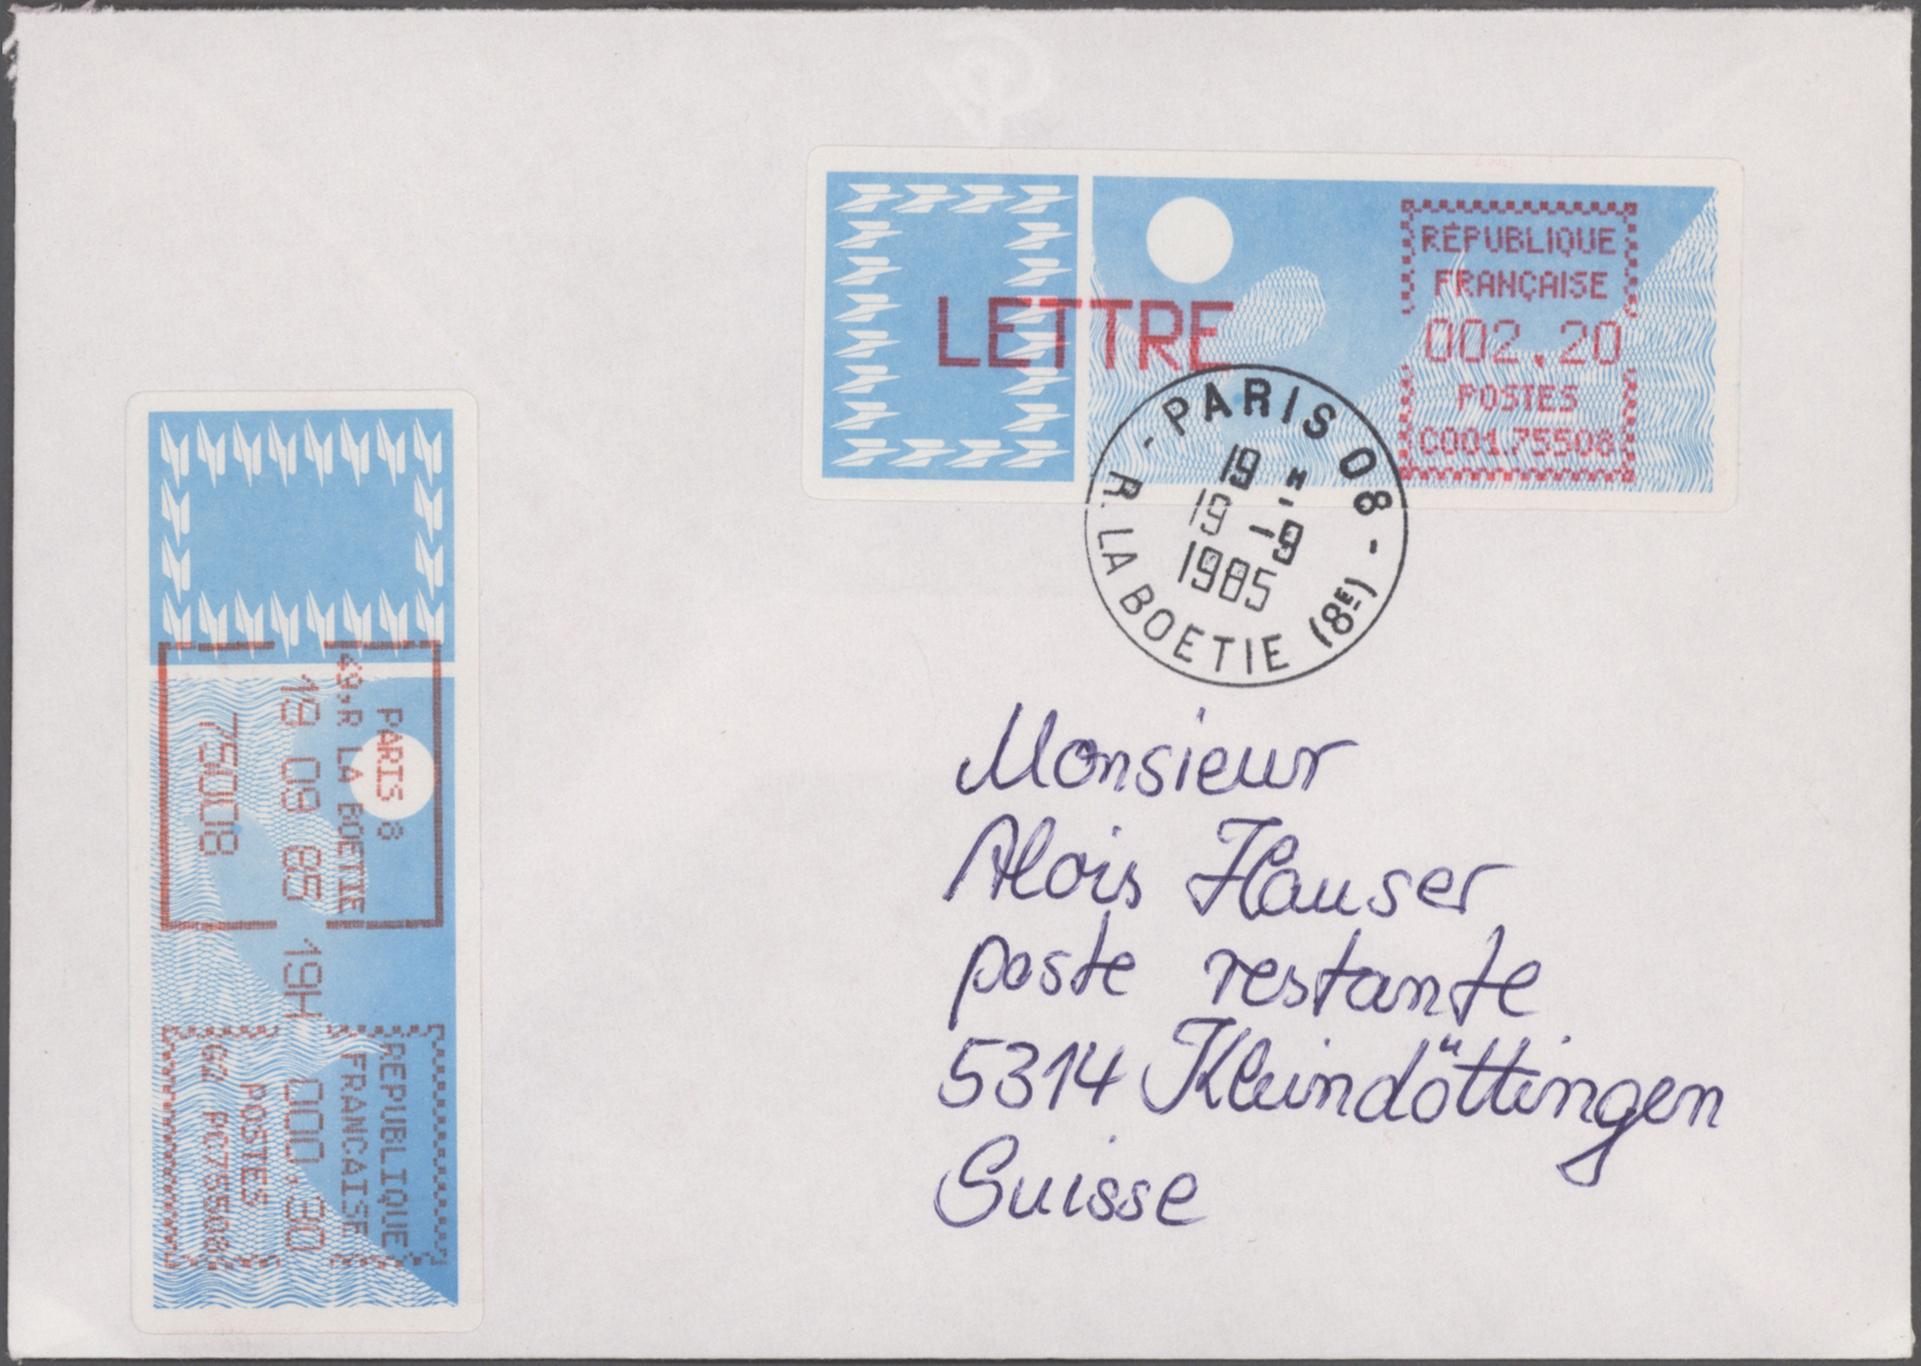 LETTRE
RÉPUBLIQUE
FRANÇAISE
002,20
POSTES
C001.75508
- PARIS 08 -
19 H
19 -9
1985
R. LA BOETIE (8E)
PARIS 8
49,R LA BOETIE
19 09 85 19H
75008
REPUBLIQUE
FRANCAISE
000,30
POSTES
PC75508
Monsieur
Alois Hauser
poste restante
5314 Kleindöttingen
Suisse